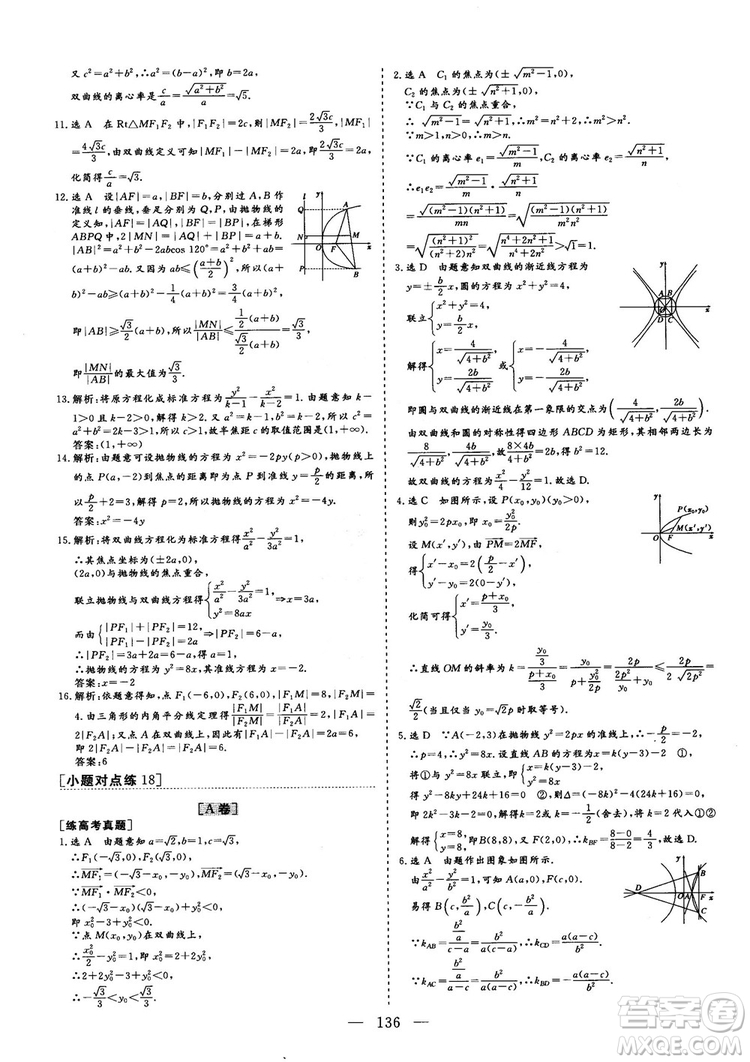 又 c²=a²+b²,∴a²=(b-a)²,即 b=2a,
双曲线的离心率是 c/a=√(a²+b²)/a=√5.
11.选 A 在 Rt△MF₁F₂ 中,|F₁F₂|=2c,则|MF₂|=2√3c/3,|MF₁|
=4√3c/3,由双曲线定义可知|MF₁|-|MF₂|=2a,即2√3c/3=2a,
化简得 c/a=√3.
12.选 A 设|AF|=a,|BF|=b,分别过 A,B 作
准线 l 的垂线,垂足分别为 Q,P,由抛物线的
定义知,|AF|=|AQ|,|BF|=|BP|,在梯形
ABPQ 中,2|MN|=|AQ|+|BP|=a+b.
|AB|²=a²+b²-2abcos 120°=a²+b²+ab=
(a+b)²-ab.因为 ab≤((a+b)/2)²,则(a+b)²-ab≥
(a+b)²-1/4(a+b)²=3/4(a+b)²,
即|AB|≥√3/2(a+b),所以|MN|/|AB|≤(1/2(a+b))/(√3/2(a+b))=√3/3,
即|MN|/|AB|的最大值为√3/3.
13.解析:将原方程化成标准方程为 y²/(k-1)-x²/(k-2)=1.由题意知 k-
1>0 且 k-2>0,解得 k>2.又 a²=k-1,b²=k-2,所以 c²=a²
+b²=2k-3>1,所以 c>1,故半焦距 c 的取值范围是(1,+∞).
答案:(1,+∞)
14.解析:由题意可设抛物线的方程为 x²=-2py(p>0),抛物线上
的点 P(a,-2)到焦点的距离即为点 P 到准线 y=p/2 的距离,所
以 p/2+2=3,解得 p=2.即所求的抛物线方程为 x²=-4y.
答案:x²=-4y
15.解析:将双曲线方程化为标准方程得 x²/a²-y²/3a²=1.
∴其焦点坐标为(±2a,0),
(2a,0)与抛物线的焦点重合,
联立抛物线与双曲线方程得{x²/a²-y²/3a²=1,
y²=8ax⇒x=3a,
而由{|PF₁|+|PF₂|=12,
|PF₁|-|PF₂|=2a⇒|PF₂|=6-a,
∴|PF₂|=3a+2a=6-a,得 a=1.
∴抛物线的方程为 y²=8x,其准线方程为 x=-2.
答案:x=-2
16.解析:依题意得知,点 F₁(-6,0),F₂(6,0),|F₁M|=8,|F₂M|=
4.由三角形的内角平分线定理得|F₁M|/|F₂M|=|F₁A|/|F₂A|=2,|F₁A|=
2|F₂A|;又点 A 在双曲线上,因此有|F₁A|-|F₂A|=2×3=6,
即 2|F₂A|-|F₂A|=|F₂A|=6.
答案:6
[小题对点练 18]
[A 卷]
[练高考真题]
1.选 A 由题意知 a=√2,b=1,c=√3,
∴F₁(-√3,0),F₂(√3,0),
∴MF₁=(-√3-x₀,-y₀),MF₂=(√3-x₀,-y₀).
∵MF₁·MF₂<0,
∴(-√3-x₀)(√3-x₀)+y₀²<0,
即 x₀²-3+y₀²<0.
∵点 M(x₀,y₀)在双曲线上,
∴x₀²/2-y₀²=1,即 x₀²=2+2y₀²,
∴2+2y₀²-3+y₀²<0,
∴-√3/3<y₀<√3/3.故选 A.
2.选 A C₁ 的焦点为(±√(m²-1),0),
C₂ 的焦点为(±√(n²+1),0),
∵C₁ 与 C₂ 的焦点重合,
∴√(m²-1)=√(n²+1),∴m²=n²+2,
∵m>1,n>0,∴m>n.
∵C₁ 的离心率 e₁=√(m²-1)/m,C₂ 的离心率 e₂=√(n²+1)/n,
∴e₁e₂=√(m²-1)/m·√(n²+1)/n
=√((m²-1)(n²+1))/√(m²n²)=√((n²+1)²)/√(n²(n²+2))
=√((n²+1)²/(n²(n²+2)))=√((n⁴+2n²+1)/(n⁴+2n²))>√1=1.
3.选 D 由题意知双曲线的渐近线方程为
y=±b/2x,圆的方程为 x²+y²=4,
联立{x²+y²=4,
y=b/2x,
解得{x=4/√(4+b²),
y=2b/√(4+b²)或{x=-4/√(4+b²),
y=-2b/√(4+b²),
即圆与双曲线的渐近线在第一象限的交点为(4/√(4+b²),2b/√(4+b²)).
由双曲线和圆的对称性得四边形 ABCD 为矩形,其相邻两边长为
8/√(4+b²),4b/√(4+b²),故(8×4b)/(4+b²)=2b,得 b²=12.
故双曲线的方程为 x²/4-y²/12=1.故选 D.
4.选 C 如图所示,设 P(x₀,y₀)(y₀>0),
则 y₀²=2px₀,即 x₀=y₀²/2p.
设 M(x′,y′),由 PM=2MF,
得{x′-x₀=2(p/2-x′),
y′-y₀=2(0-y′),
化简可得{x′=(p+x₀)/3,
y′=y₀/3.
∴直线 OM 的斜率为 k=(y₀/3)/((p+x₀)/3)=y₀/(p+y₀²/2p)=2p/(2p²/y₀+y₀)≤2p/2√(2p²)=√2/2
(当且仅当 y₀=√2p 时取等号).
5.选 D ∵A(-2,3)在抛物线 y²=2px 的准线上,∴-p/2=-2,
∴p=4,∴y²=8x.设直线 AB 的方程为 x=k(y-3)-2,①
将①与 y²=8x 联立,得 y²-8ky+24k+16=0,②
则 Δ=(-8k)²-4(24k+16)=0,解得 k=2 或 k=-1/2(舍去),将 k=
2代入①②解得{x=8,
y=8,即 B(8,8),又 F(2,0),∴k_BF=(8-0)/(8-2)=4/3,故选 D.
6.选 A 由题作出图象如图所示.
由 x²/a²-y²/b²=1 可知 A(a,0),F(c,0).
易得 B(c,b²/a),C(c,-b²/a).
∵k_AB=(b²/a)/(c-a)=b²/(a(c-a)),∴k_CD=a(a-c)/b².
∵k_AC=(b²/a)/(a-c)=b²/(a(a-c)),∴k_BD=-a(a-c)/b².
— 136 —